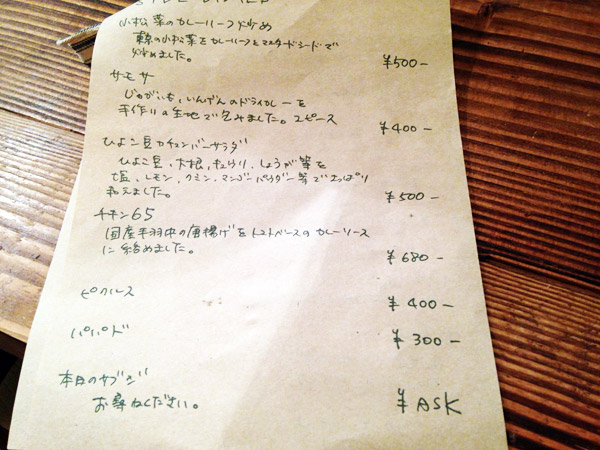 小松菜のカレーリーフ炒め
東京の小松菜をカレーリーフとマスタードシードで
炒めました。
¥500-
サモサ
じゃがいも、いんげんのドライカレーを
手作りの生地で包みました。2ピース
¥400-
ひよこ豆カチュンバーサラダ
ひよこ豆、大根、きゅうり、しょうが等を
塩、レモン、クミン、マンゴーパウダー等でさっぱり
和えました。
¥500-
チキン65
国産手羽中の唐揚げをトマトベースのカレーソース
に絡めました。
¥680-
ピクルス
¥400-
パパド
¥300-
本日のサブジ
お尋ねください。
¥ASK